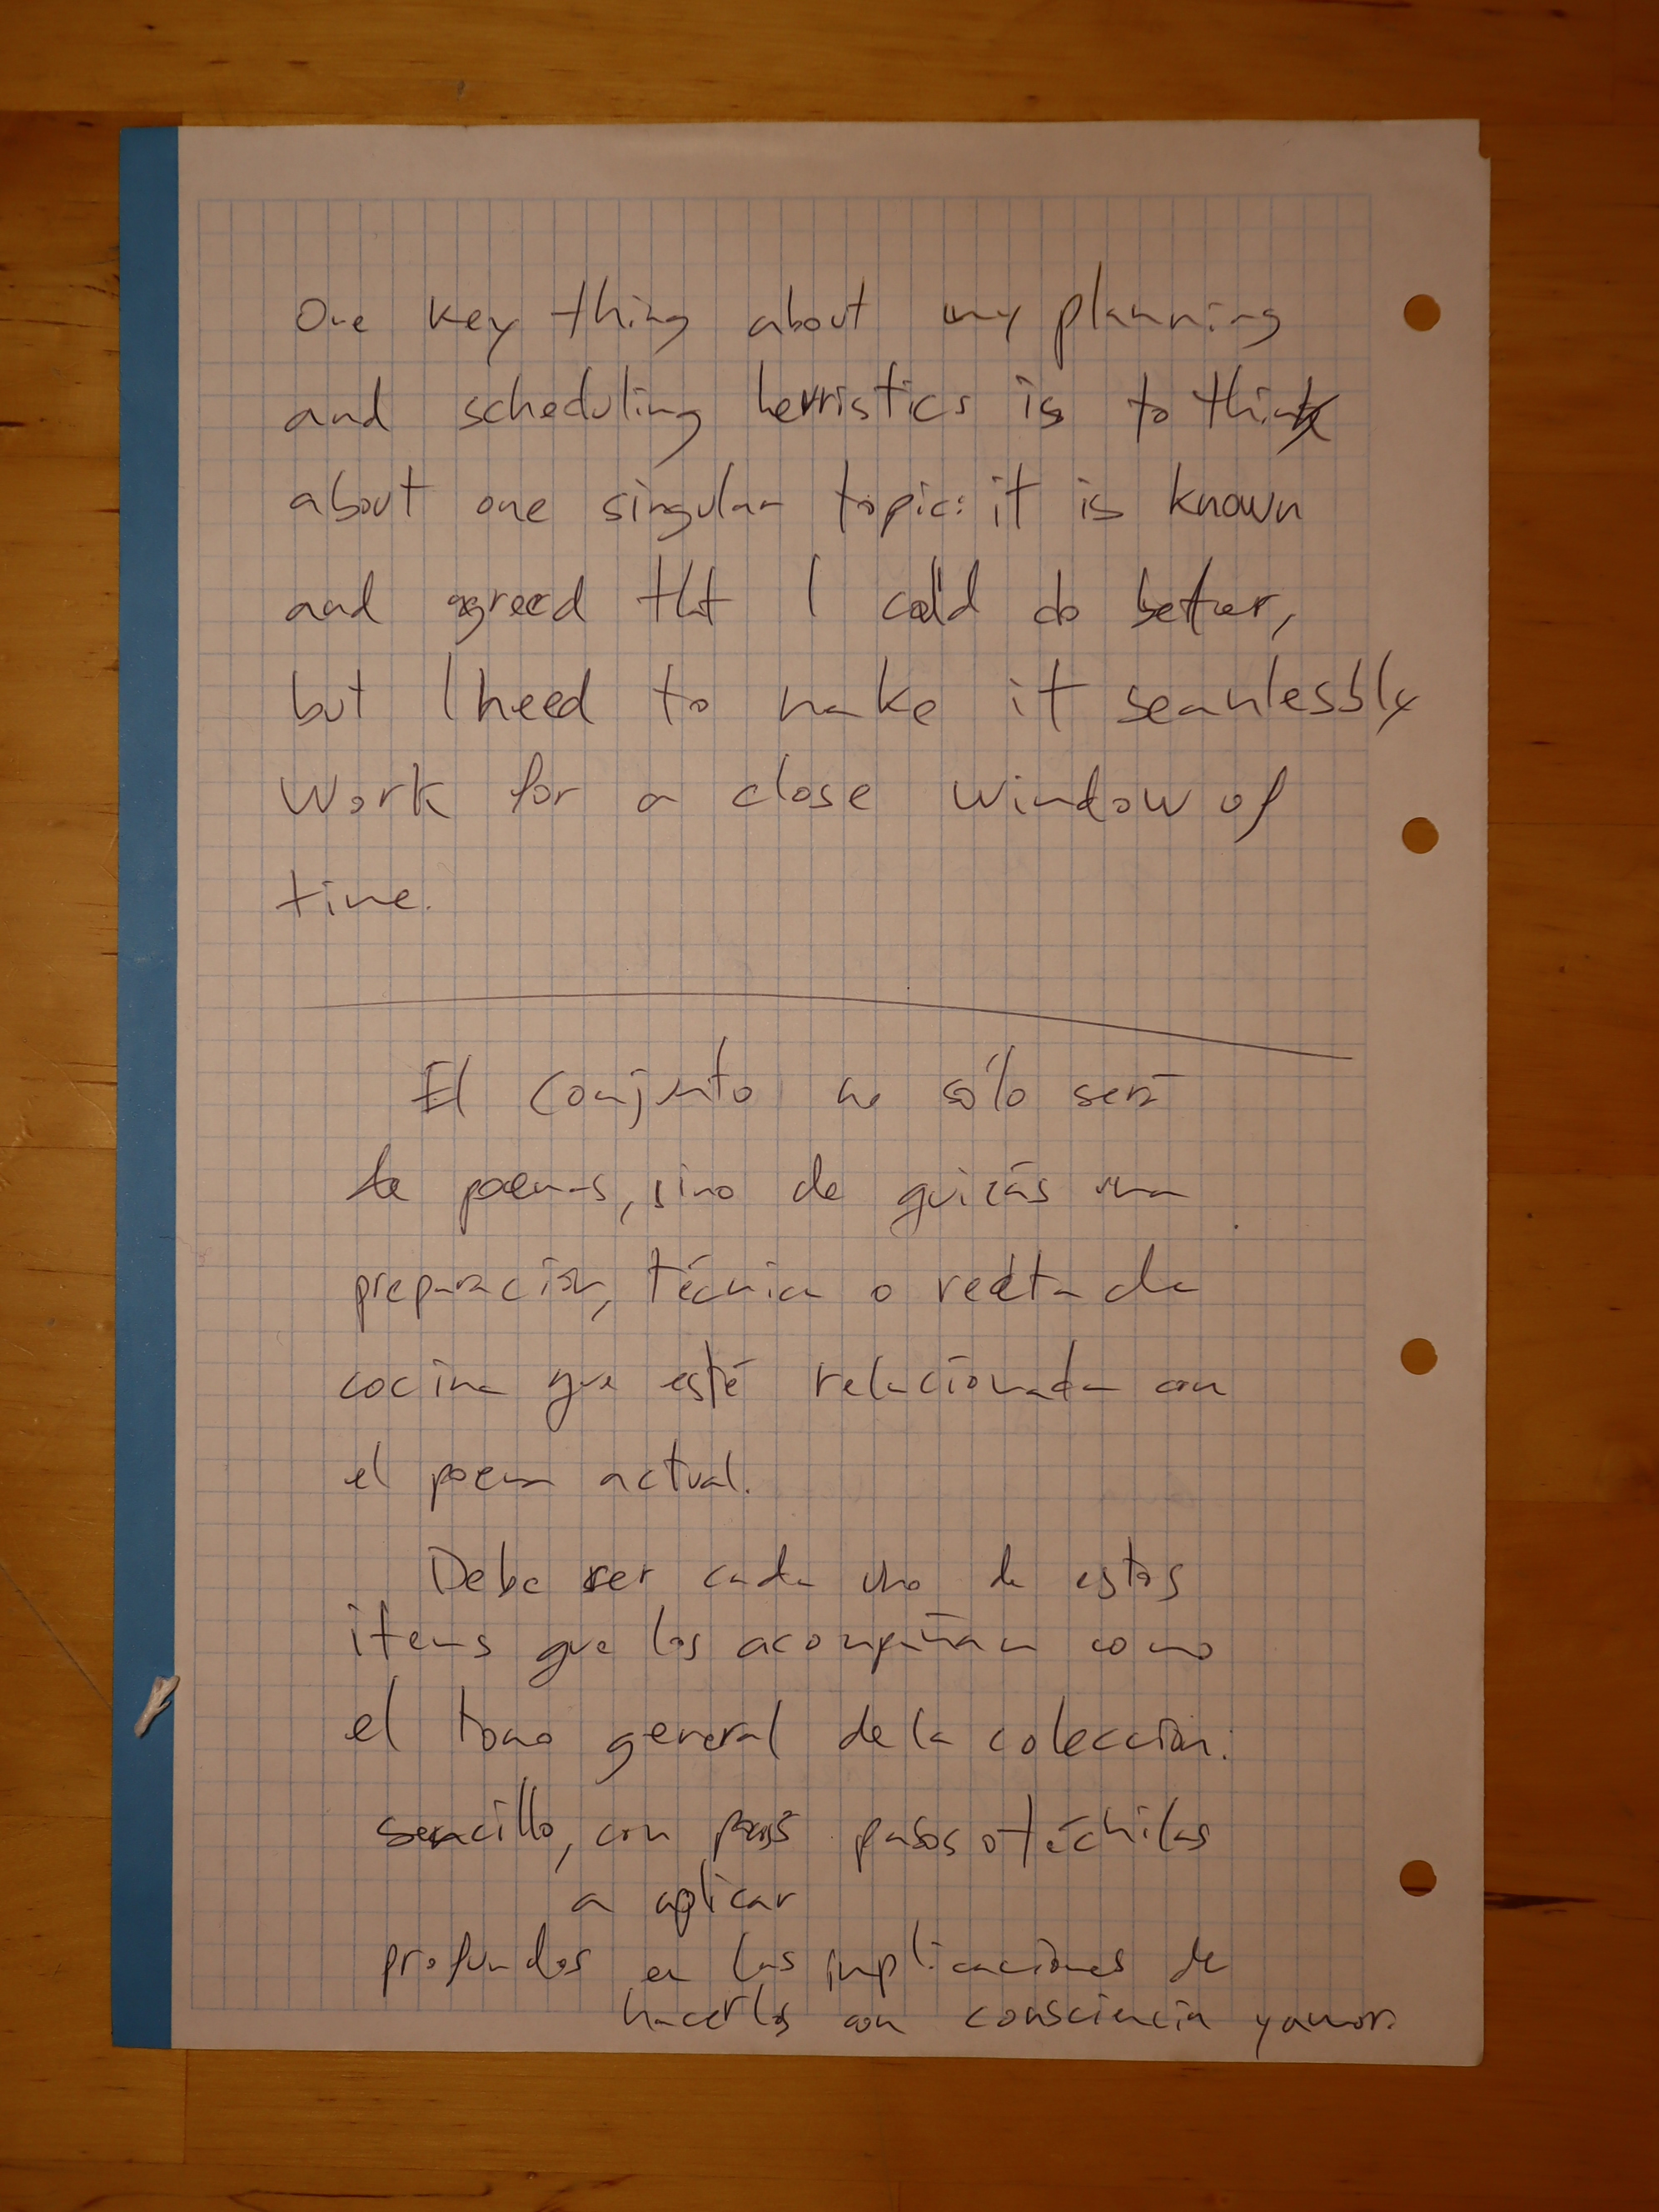 One key thing about my planning
and scheduling heuristics is to think
about one singular topic: it is known
and agreed tht I could do better,
but I need to make it seamlessly
work for a close window of
time.
El conjunto no sólo será
de poemas, sino de quizás una
preparación, técnica o receta de
cocina que esté relacionada con
el poema actual.
Debe ser cada uno de estos
ítems que los acompañan como
el tono general de la colección:
sencillo, con pocos pasos o técnicas
a aplicar
profundos en las implicaciones de
hacerlos con consciencia y amor.